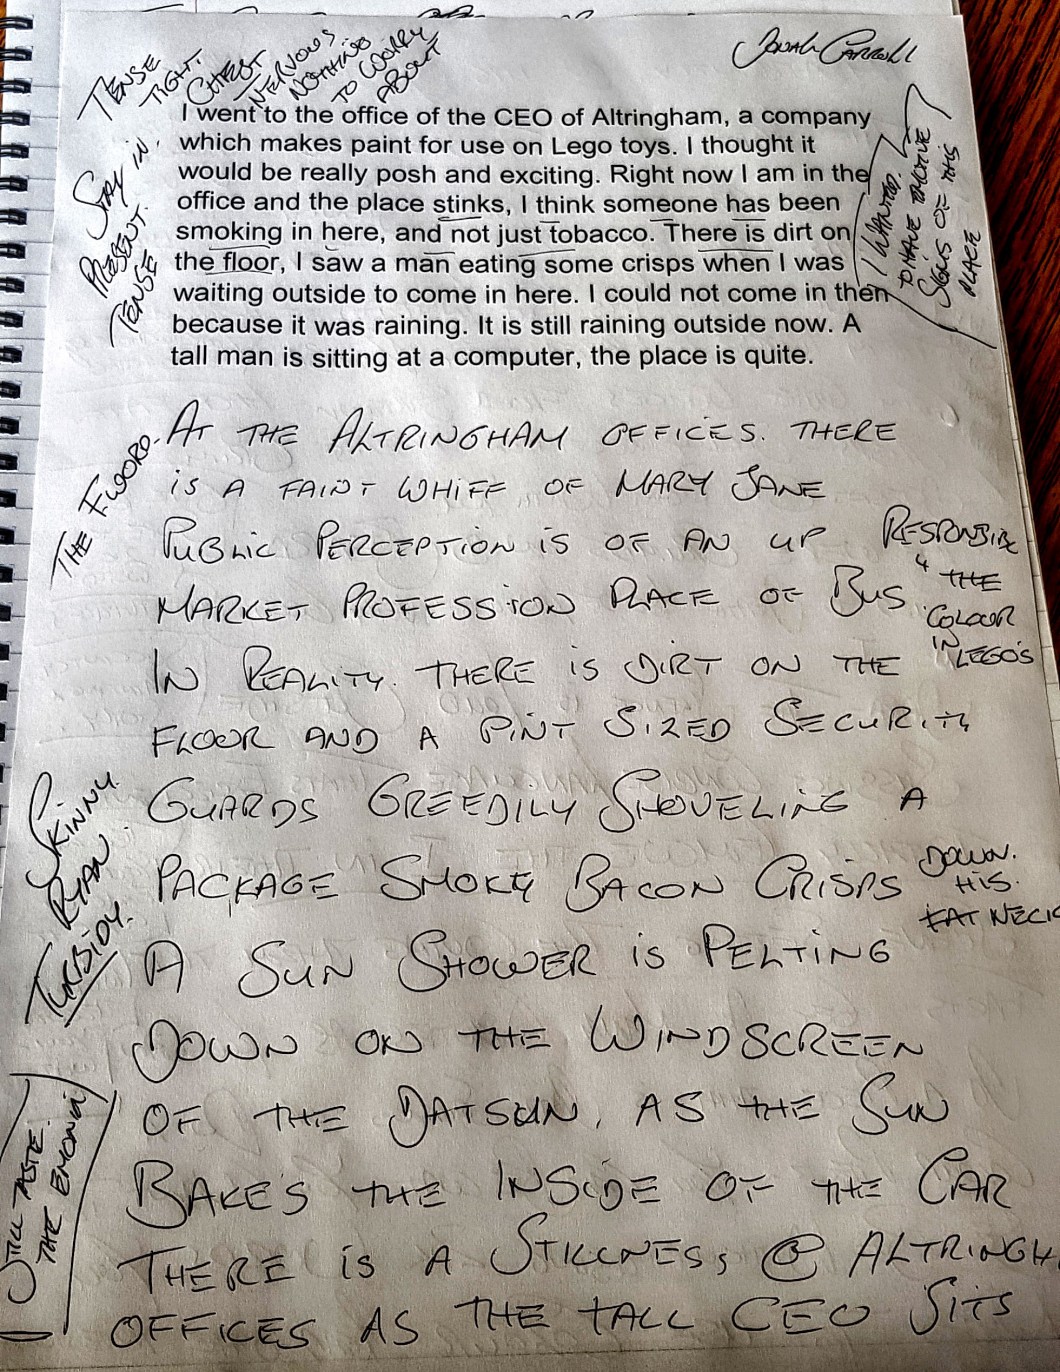 TENSE
TIGHT.
CHEST
NERVOUS
NOTHING
TO WORRY
ABOUT
Jonah Carroll
I went to the office of the CEO of Altringham, a company
which makes paint for use on Lego toys. I thought it
would be really posh and exciting. Right now I am in the
office and the place stinks, I think someone has been
smoking in here, and not just tobacco. There is dirt on
the floor, I saw a man eating some crisps when I was
waiting outside to come in here. I could not come in then
because it was raining. It is still raining outside now. A
tall man is sitting at a computer, the place is quite.
STAY IN.
PRESENT.
TENSE
I WANTED.
TO HAVE
SIGNS OF THIS
PLACE
THE F.WORD.
AT THE ALTRINGHAM OFFICES. THERE
IS A FAINT WHIFF OF MARY JANE
PUBLIC PERCEPTION IS OF AN UP
MARKET PROFESSION PLACE OF BUS.
RESPONSIBLE
4 THE
COLOUR
IN LEGO'S
IN REALITY. THERE IS DIRT ON THE
FLOOR AND A PINT SIZED SECURITY
GUARDS GREEDILY SHOVELING A
PACKAGE SMOKY BACON CRISPS
DOWN.
HIS.
FAT NECK
SKINNY.
RYAN
TURBIDY.
A SUN SHOWER IS PELTING
DOWN ON THE WINDSCREEN
OF THE DATSUN, AS THE SUN
BAKE'S THE INSIDE OF THE CAR
THERE IS A STILLNESS, @ ALTRINGH
OFFICES AS THE TALL CEO SITS
STILL TASTE.
THE